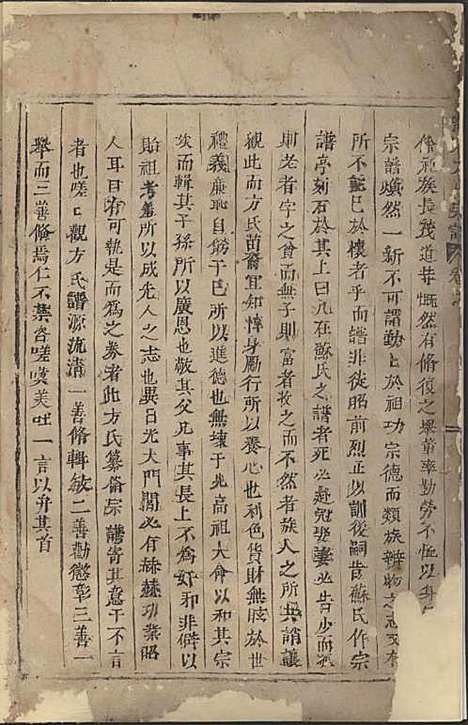 倅祖族長茂道甘慨然有脩復之舉董率勤勞不怋以
宗譜煥然一新不可謂勤上於祖功宗德而類族辨物之
所不能已於懷者乎而譜非從昭前烈正以訓後嗣昔蘇氏作宗
譜亭刻石於其上曰凡在蘇氏之譜者死必赴冠娶妻必告少而孤
則老者字之貧而無子則富者收之而不然者族人之所共誚讓
觀此而方氏苗裔宜知惇身勵行所以養心也利色貨財無賊於世
禮義廉恥自飭于已所以進德也無壞于先高祖大命以和其宗
族而輯其子孫所以廣恩也敬其父兄事其長上不為奸和非僻以
貽祖考羞所以成先人之志也異日光大門閭必有赫赫功業昭
人耳目有可執是而為之券者此方氏纂脩宗譜寄其意于不言
者也嗟〻觀方氏譜源流清一善脩輯敏二善勸懲彰三善一
舉而三善脩焉仁不業咨嗟嘆美吐一言以弁其首